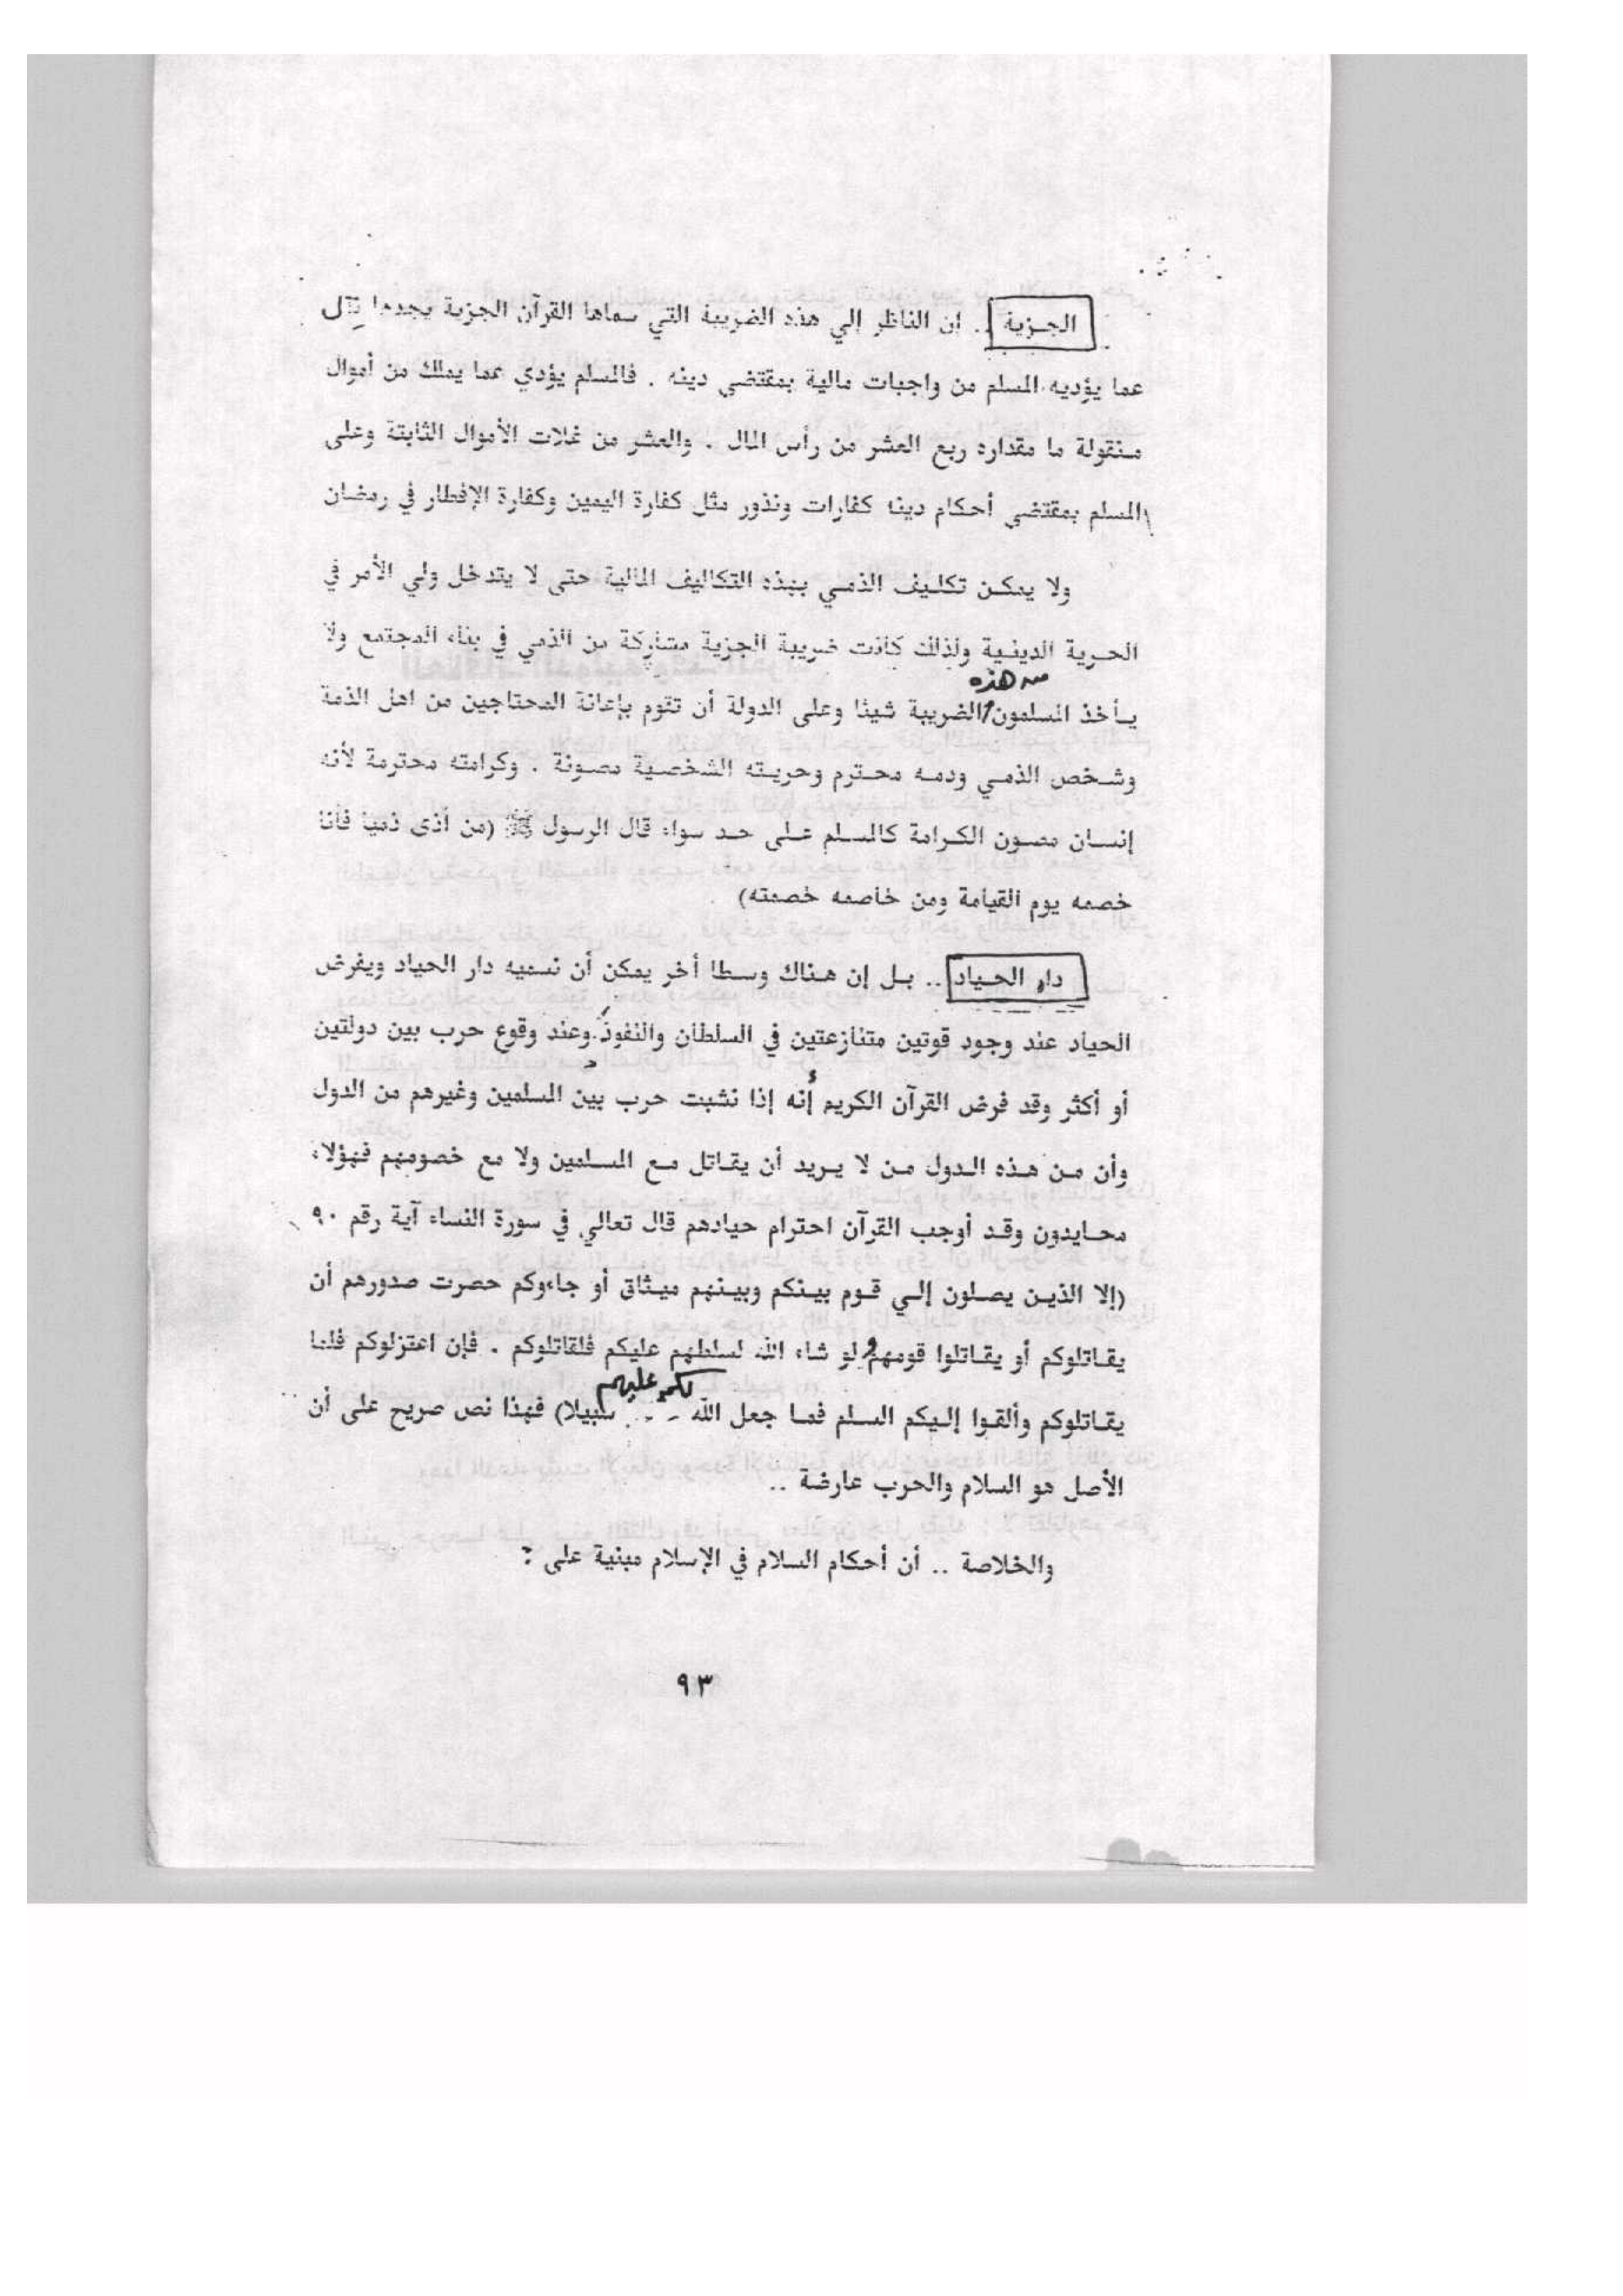 الجـزية .. إن الناظر إلي هذه الضريبة التي سماها القرآن الجزية يجدها تقل
عما يؤديه المسلم من واجبات مالية بمقتضي دينه . فالمسلم يؤدي عما يملك من أموال
منقولة ما مقداره ربع العشر من رأس المال . والعشر من غلات الأموال الثابتة وعلى
المسلم بمقتضي أحكام دينا كفارات ونذور مثل كفارة اليمين وكفارة الإفطار في رمضان
ولا يمكـن تكلـيف الذمـي بهذه التكاليف المالية حتى لا يتدخل ولي الأمر في
الحـرية الدينـية ولذلك كانت ضريبة الجزية مشاركة من الذمي في بناء المجتمع ولا
من هذه
يـأخذ المسلمون الضريبة شيئا وعلى الدولة أن تقوم بإعانة المحتاجين من اهل الذمة
وشـخص الذمـي ودمـه محـترم وحريـته الشخصـية مصـونة . وكرامته محترمة لأنه
إنسـان مصـون الكـرامة كالمسلـم علـى حـد سواء قال الرسول ﷺ (من أذى ذميا فأنا
خصمه يوم القيامة ومن خاصمه خصمته)
دار الحـياد .. بـل إن هـناك وسـطا أخر يمكن أن نسميه دار الحياد ويفرض
الحياد عند وجود قوتين متنازعتين في السلطان والنفوذ وعند وقوع حرب بين دولتين
أو أكثر وقد فرض القرآن الكريم أنه إذا نشبت حرب بين المسلمين وغيرهم من الدول
وأن مـن هـذه الـدول مـن لا يـريد أن يقـاتل مـع المسـلمين ولا مع خصومهم فهؤلاء
محـايدون وقـد أوجب القرآن احترام حيادهم قال تعالي في سورة النساء آية رقم ٩٠
(إلا الذيـن يصـلون إلـي قـوم بيـنكم وبيـنهم ميـثاق أو جاءوكم حصرت صدورهم أن
يقـاتلوكم أو يقـاتلوا قومهم ولو شاء الله لسلطهم عليكم فلقاتلوكم . فإن اعتزلوكم فلما
لكم عليهم
يقـاتلوكم وألقـوا إلـيكم السـلم فمـا جعل الله سبيلا) فهذا نص صريح على أن
الأصل هو السلام والحرب عارضة ..
والخلاصة .. أن أحكام السلام في الإسلام مبنية على :
٩٣